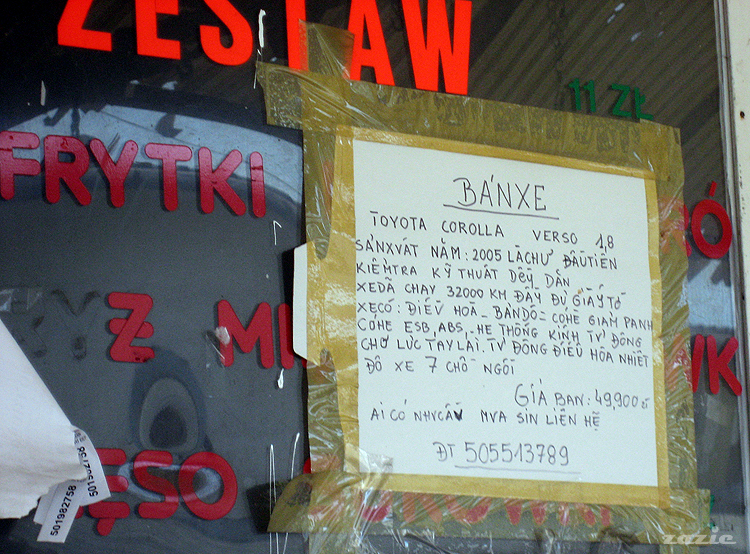 ZESTAW
11 ZŁ
FRYTKI
BÁNXE
TOYOTA COROLLA VERSO 1,8
SẢNXVÁT NĂM: 2005 LÀCHƯ ĐẦUTIÊN
KIỂMTRA KỸ THUẬT DẾY DĂN
XEDÃ CHAY 32000 KM ĐẦY ĐỦ GIẤY TỜ
XECÓ: ĐIỀU HOÀ - BẢNĐỒ - COHÊ GIAM PANH
COHÊ ESB, ABS, HE THÔNG KÍNH TỰ ĐÔNG
CHỢ LỨC TAY LÁI. TỰ ĐÔNG ĐIỀU HÒA NHIÊT
ĐÔ XE 7 CHÔ NGỒI
GIÁ BAN: 49,900 zł
AI CÓ NHVCẦV MVA SIN LIÊN HỆ
ĐT 505513789
Ó
KY Z MI
WK
ĘSO
501982758
501982758
zazie